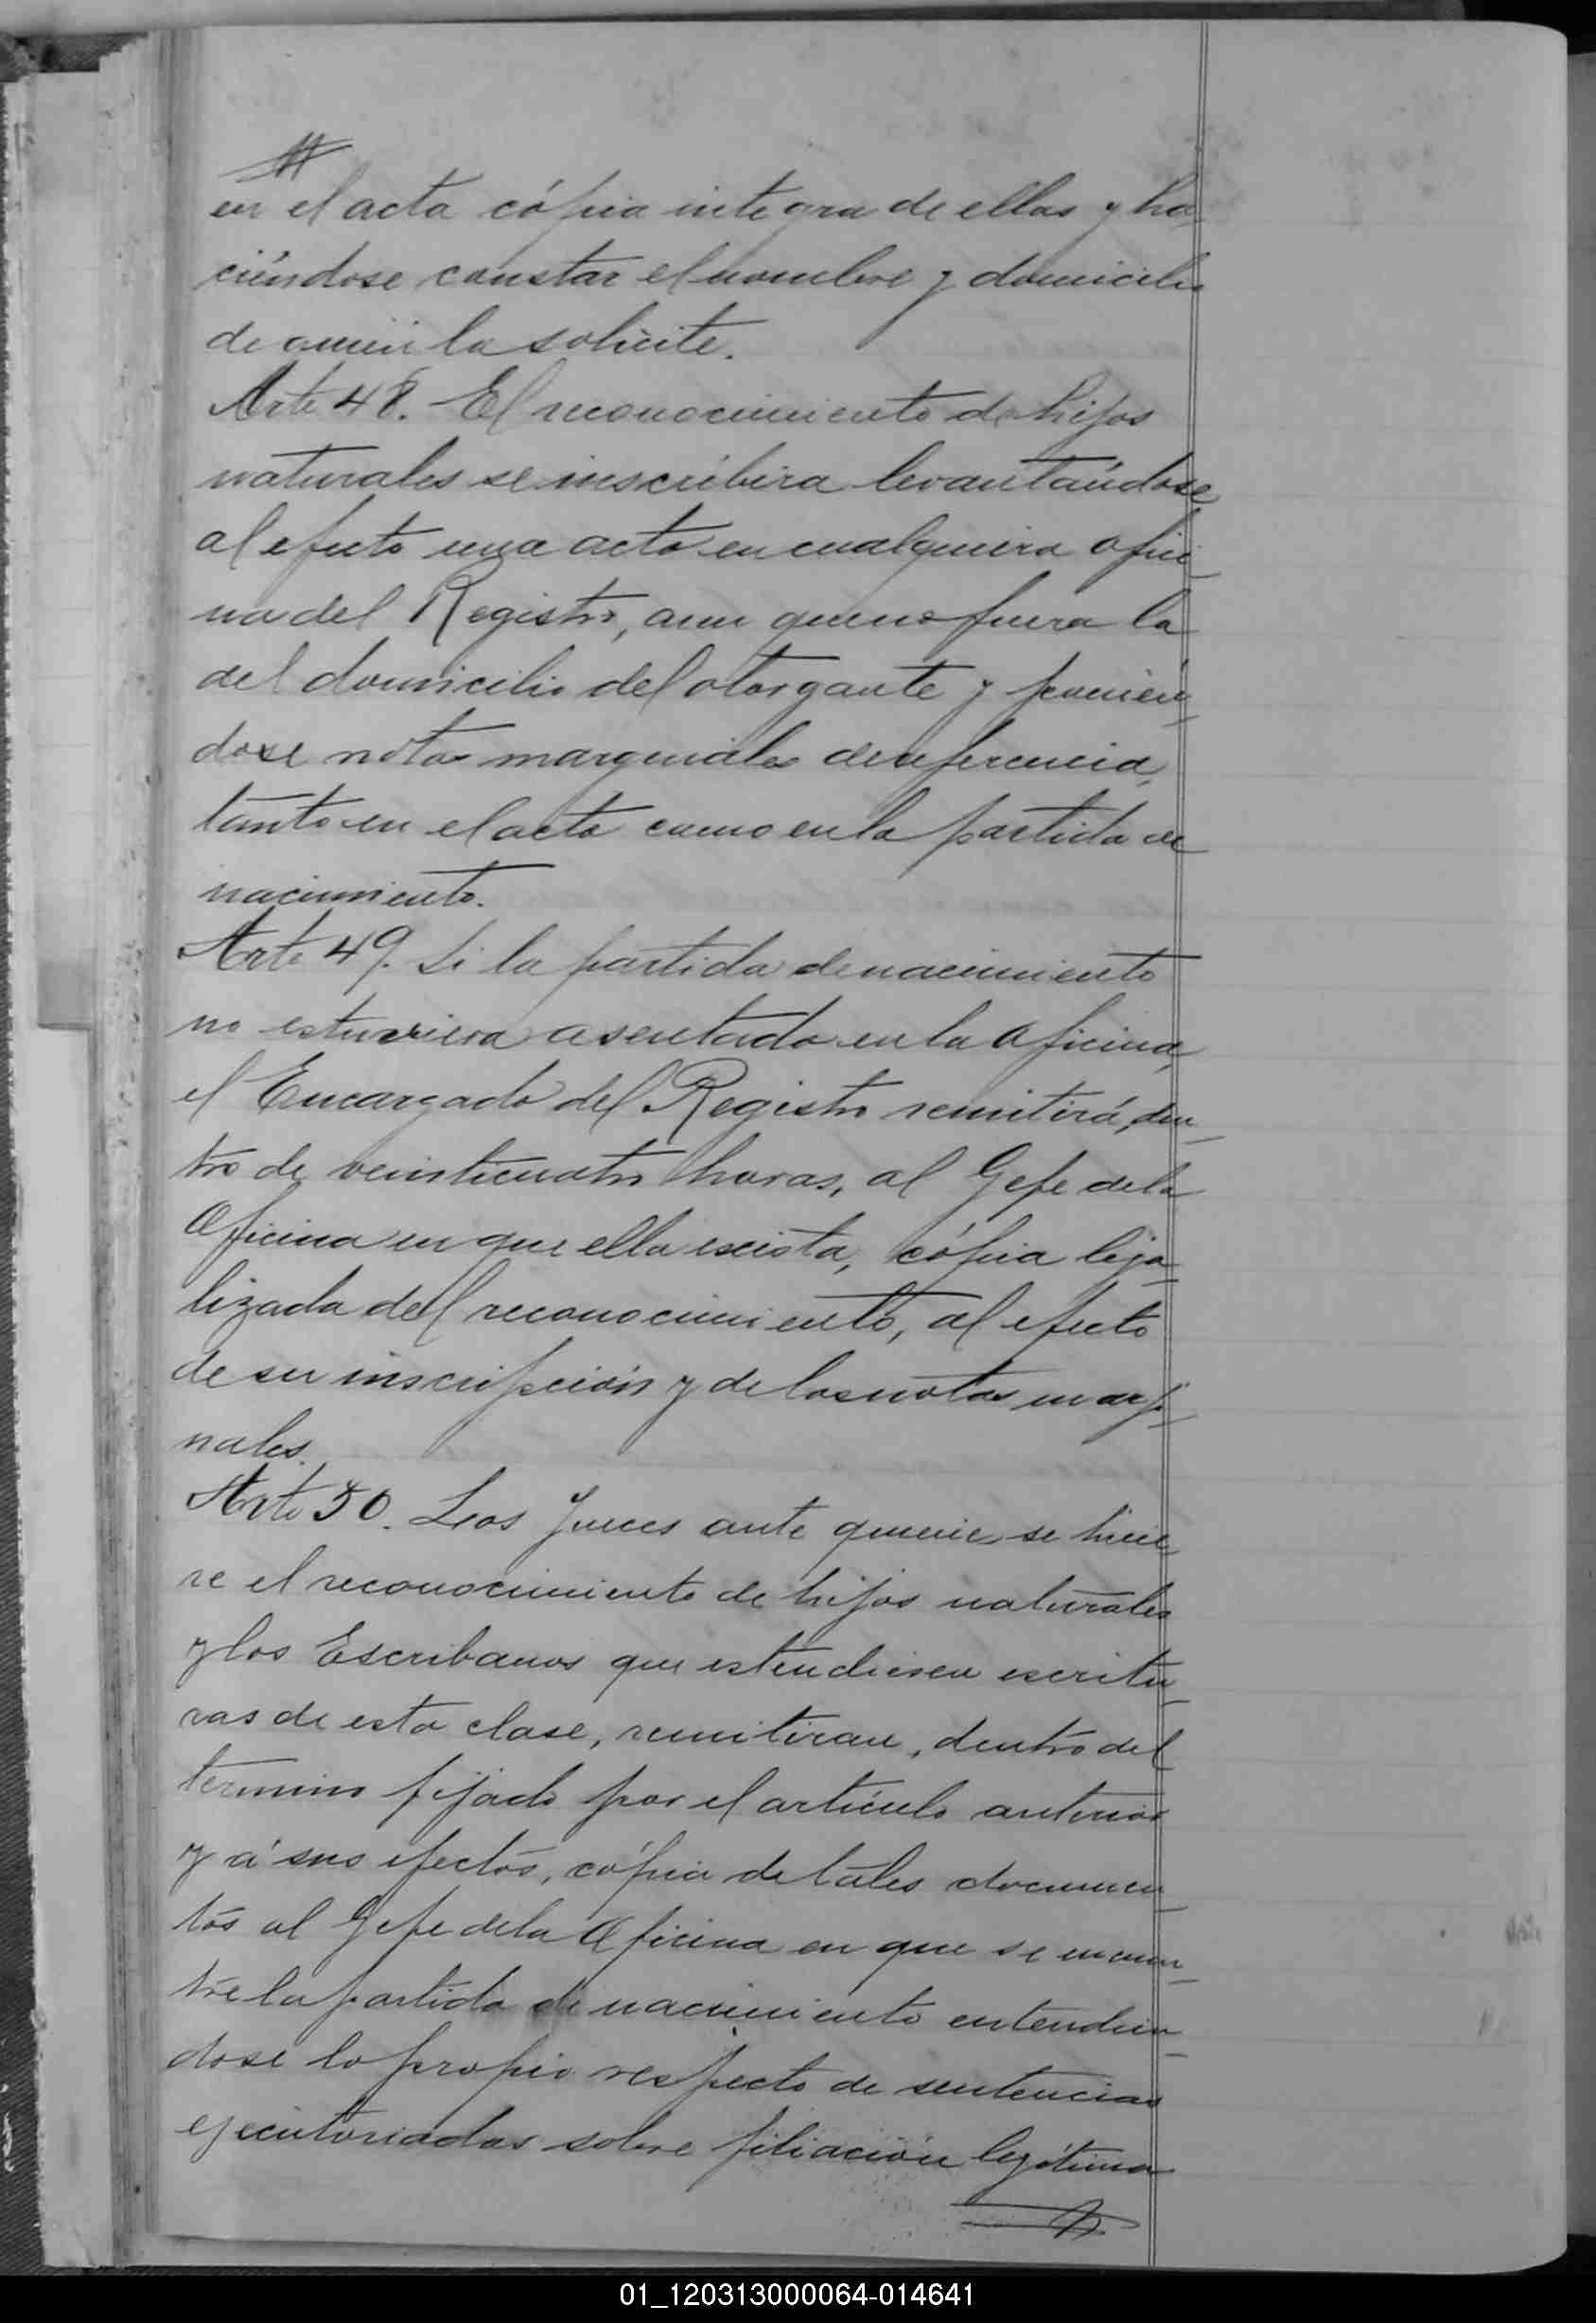 en el acta cópia integra de ellas y ha-
ciéndose constar el nombre y domicilio
de quien la solicite.
Arto 48. El reconocimiento de hijos
naturales se inscribira levantándose
al efecto una acta en cualquiera ofici-
na del Registro, aun que no fuera la
del domicilio del otorgante y ponién-
dose notas marginales de referencia,
tanto en el acta como en la partida de
nacimiento.
Arto 49. Si la partida de nacimiento
no estuviera asentada en la Oficina,
el Encargado del Registro remitirá, den-
tro de veinticuatro horas, al Gefe de la
Oficina en que ella exista, cópia lega-
lizada del reconocimiento, al efecto
de su inscripción y de las notas margi-
nales.
Arto 50. Los Jueces ante quienes se hicie
re el reconocimiento de hijos naturales
y los Escribanos que estendiesen escritu-
ras de esta clase, remitiran, dentro del
termino fijado por el artículo anterior
y á sus efectos, cópia de tales documen-
tos al Gefe de la Oficina en que se encuen-
tre la partida de nacimiento entendien-
dose lo propio respecto de sentencias
ejecutoriadas sobre filiación legítima
01_120313000064-014641